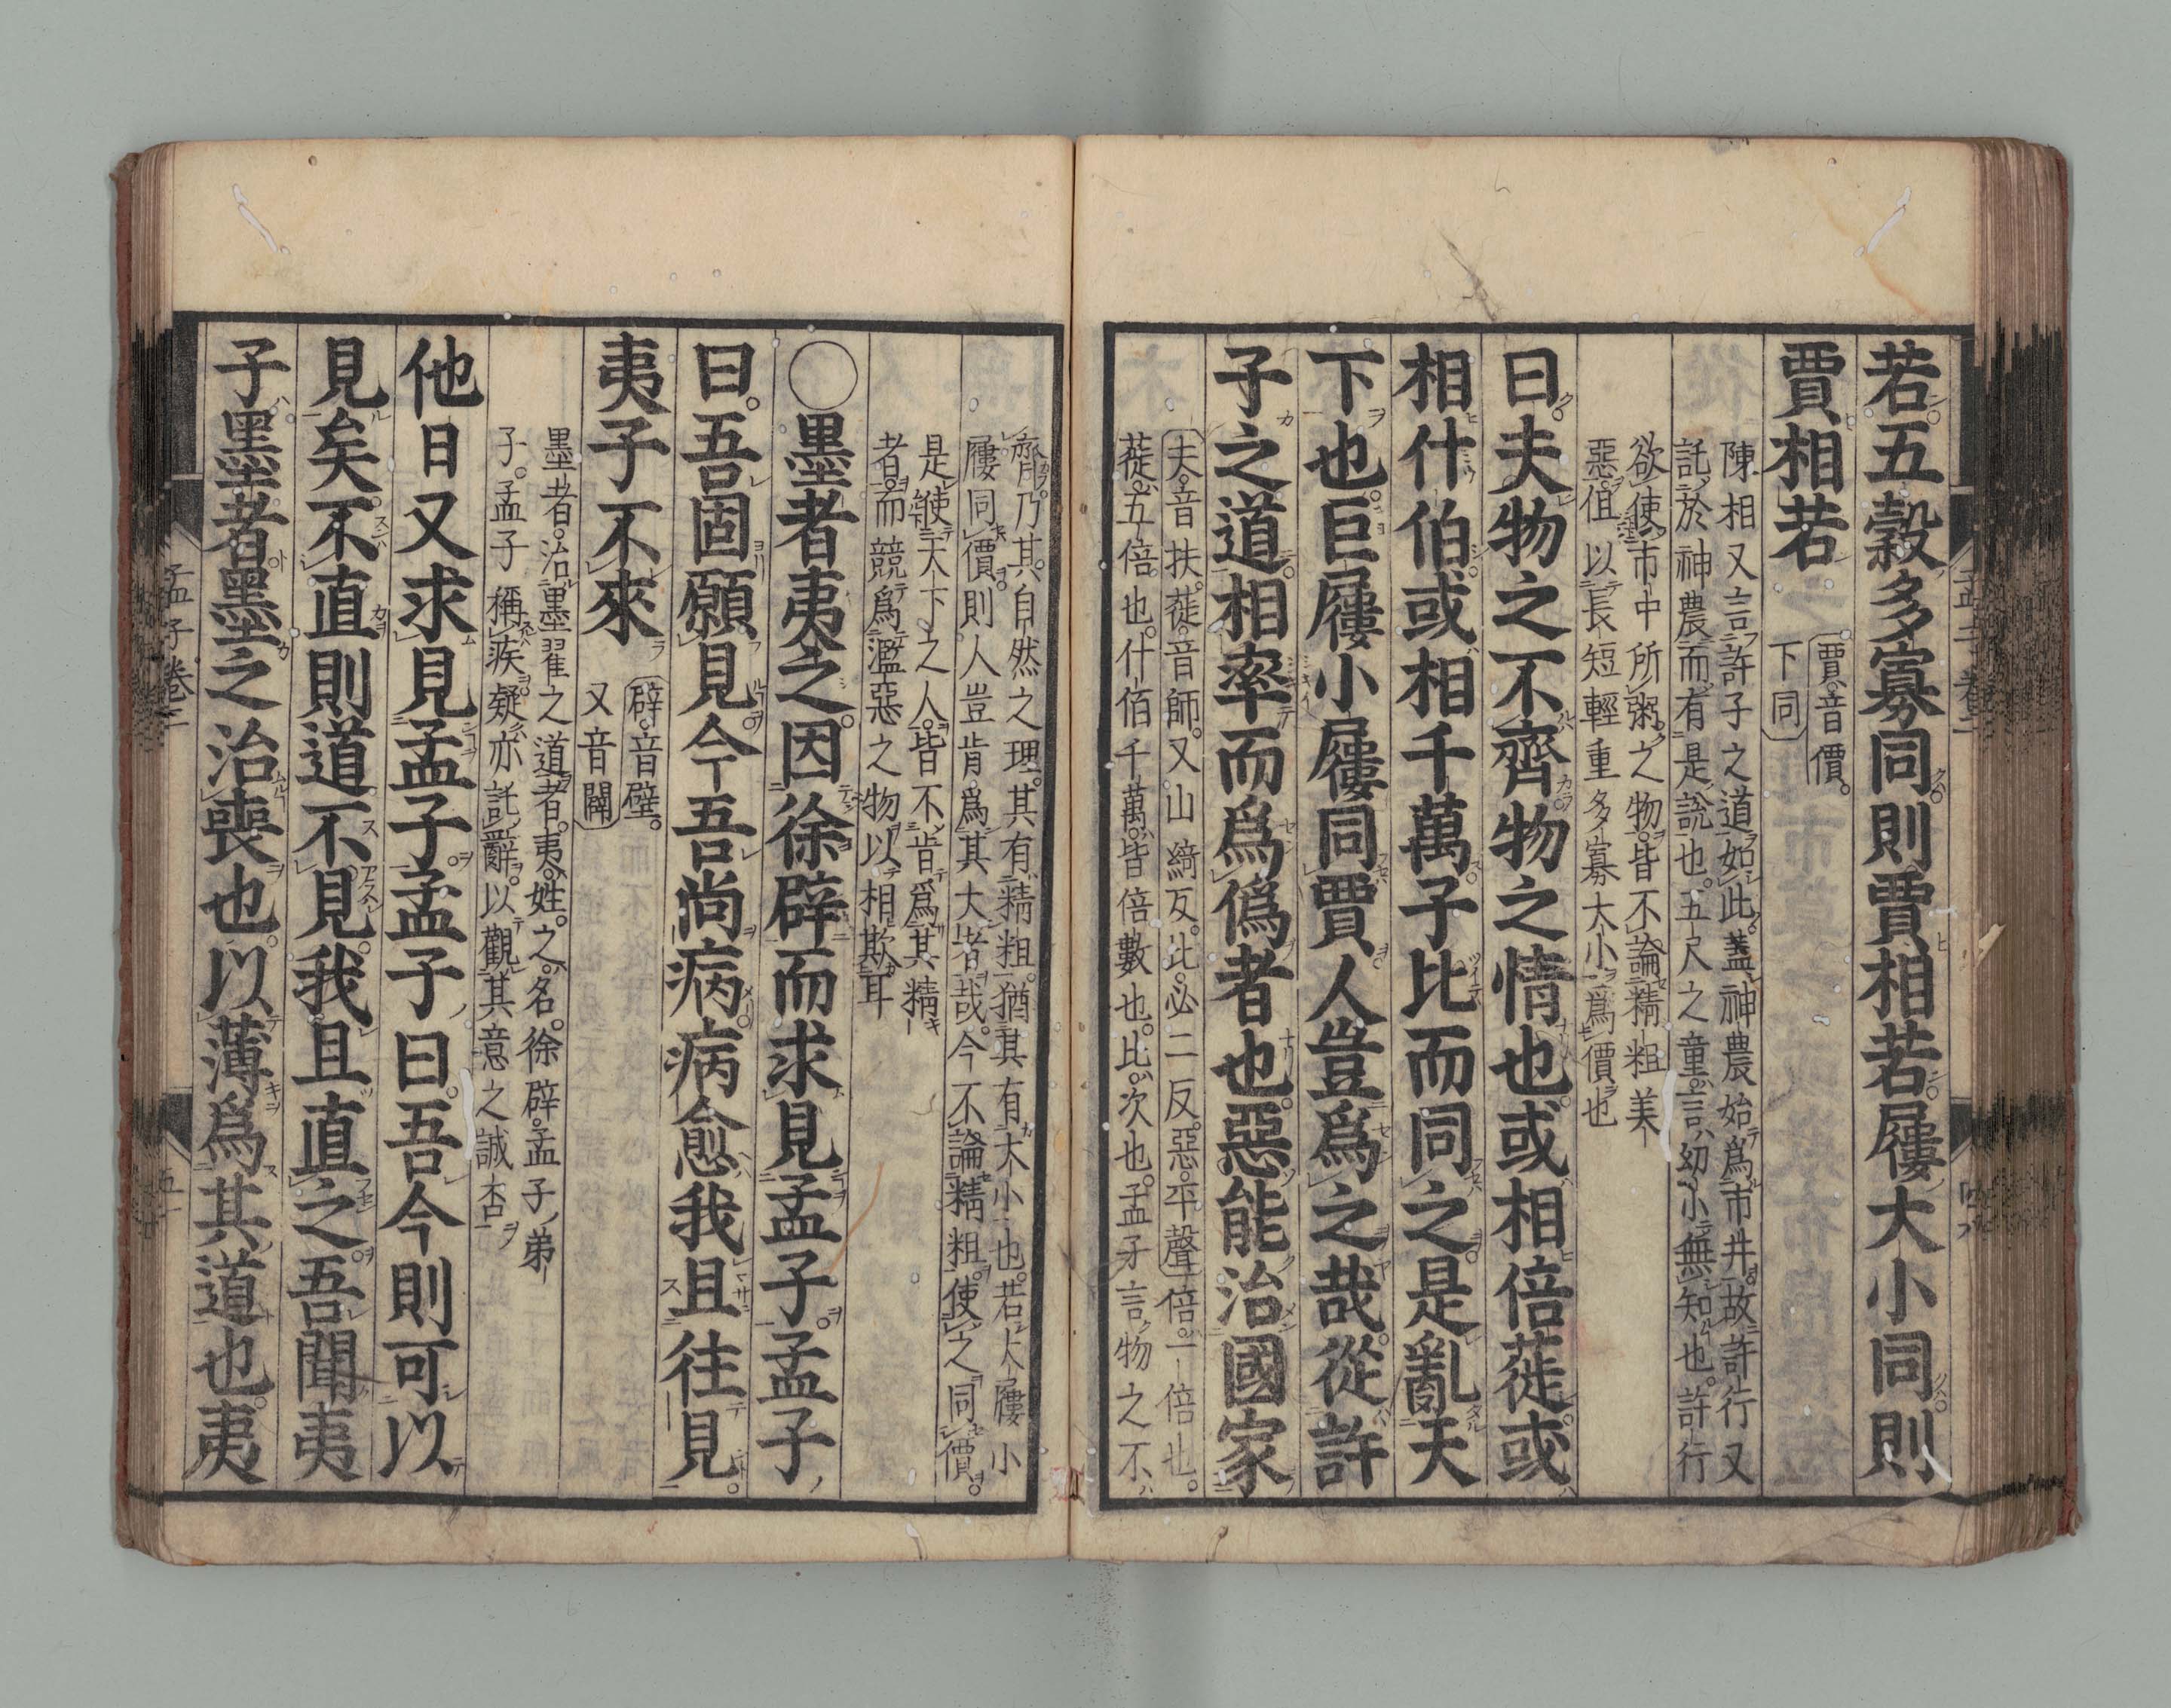 若五穀多寡同則賈相若屨大小同則
賈相若
賈音價。
下同
陳相又言許子之道如此。蓋神農始爲市井。故許行又
託於神農而有是說也。五尺之童。言幼小無知也。許行
欲使市中所粥之物。皆不論精粗美
惡。但以長短輕重多寡大小爲價也
曰。夫物之不齊物之情也或相倍蓰或
相什伯或相千萬子比而同之是亂天
下也。巨屨小屨同賈人豈爲之哉。從許
子之道。相率而爲僞者也。惡能治國家
夫。音扶。蓰。音師。又山綺反。比。必二反。惡。平聲。倍。一倍也。
蓰。五倍也。什佰千萬。皆倍數也。比。次也。孟子言物之不
齊。乃其自然之理。其有精粗。猶其有大小也。若大屨小
屨同價。則人豈肯爲其大者哉。今不論精粗。使之同價。
是使天下之人。皆不肯爲其精
者。而競爲濫惡之物。以相欺耳
○墨者夷之。因徐辟而求見孟子。孟子
曰。吾固願見今吾尚病。病愈我且往見。
夷子不來
辟。音壁。
又音闢
墨者。治墨翟之道者。夷。姓。之。名。徐辟。孟子弟
子。孟子稱疾。疑亦託辭。以觀其意之誠否
他日又求見孟子。孟子曰。吾今則可以
見矣。不直則道不見。我且直之。吾聞夷
子墨者。墨之治喪也。以薄爲其道也。夷
孟子卷三